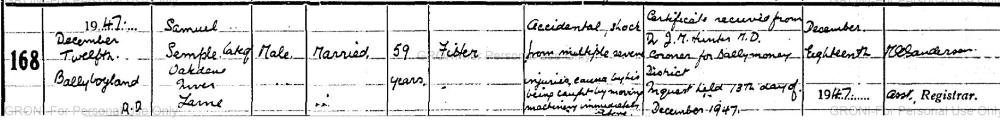 168
1947
December
Twelfth
Ballyboyland
R.D
Samuel
Semple late of
Oakdene
Inver
Larne
Male
Married
59
years
Fitter
Accidental, shock
from multiple severe
injuries, caused by his
being caught by moving
machinery immediately
Certificate received from
J. M. Hunter M.D.
Coroner for Ballymoney
District
Inquest held 13th day of
December 1947.
December
Eighteenth
1947
Asst, Registrar.
GRONI-For Personal Use Only